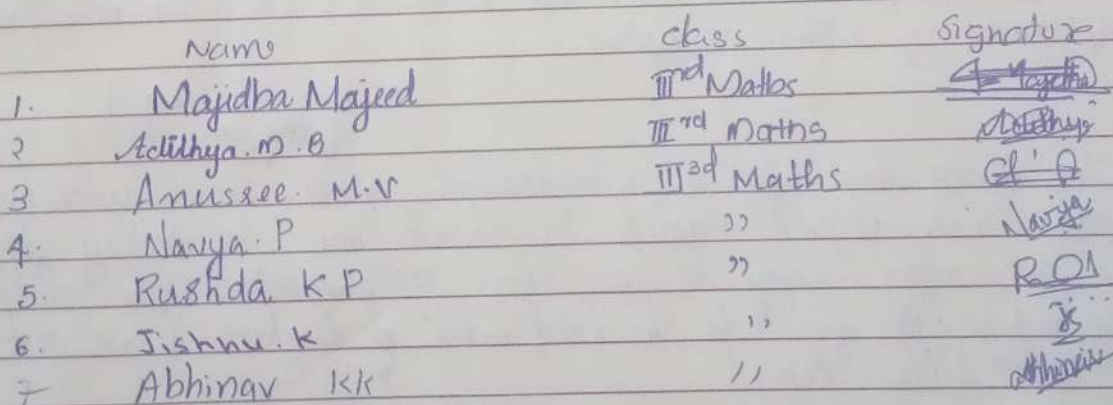 Name class Signature
1. Majidha Majeed IIIrd Maths
2 Adithya. M. B IIIrd Maths Adithya
3 Anussee. M.V III3d Maths
4. Navya. P " Navya
5. Rushda K P "
6. Jishnu. K "
7 Abhinav KK " Abhinav